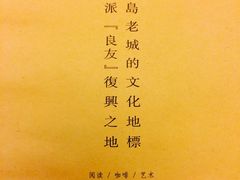 島老城的文化地標
派『良友』復興之地
阅读 / 咖啡 / 艺术